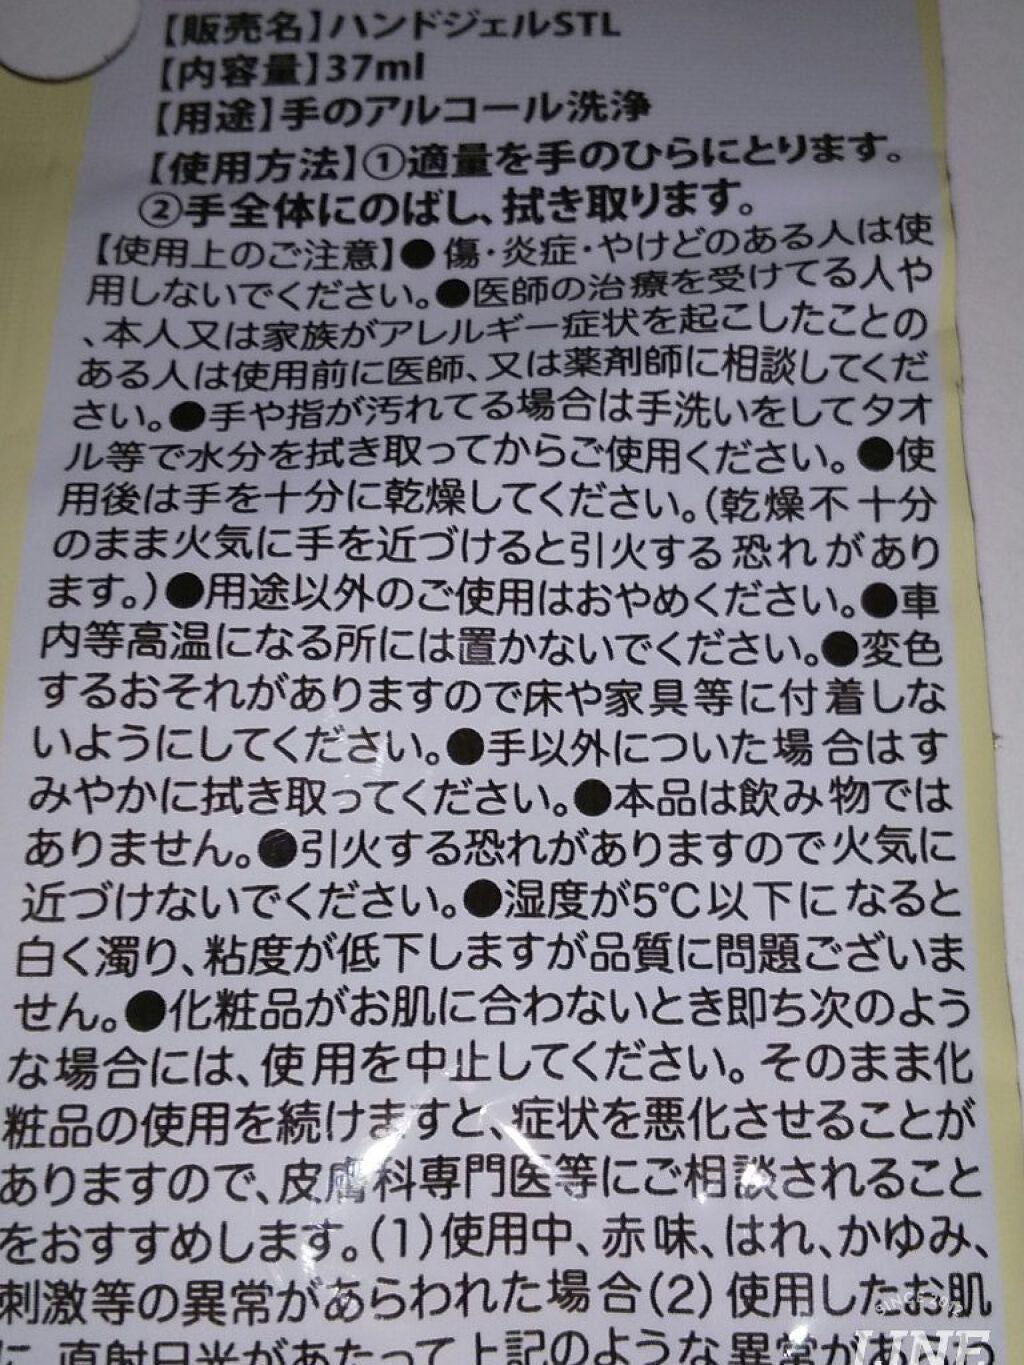 【販売名】ハンドジェルSTL
【内容量】37ml
【用途】手のアルコール洗浄
【使用方法】①適量を手のひらにとります。
②手全体にのばし、拭き取ります。
【使用上のご注意】●傷・炎症・やけどのある人は使
用しないでください。●医師の治療を受けてる人や
、本人又は家族がアレルギー症状を起こしたことの
ある人は使用前に医師、又は薬剤師に相談してくだ
さい。●手や指が汚れてる場合は手洗いをしてタオ
ル等で水分を拭き取ってからご使用ください。●使
用後は手を十分に乾燥してください。(乾燥不十分
のまま火気に手を近づけると引火する恐れがあり
ます。)●用途以外のご使用はおやめください。●車
内等高温になる所には置かないでください。●変色
するおそれがありますので床や家具等に付着しな
いようにしてください。●手以外についた場合はす
みやかに拭き取ってください。●本品は飲み物では
ありません。●引火する恐れがありますので火気に
近づけないでください。●湿度が5℃以下になると
白く濁り、粘度が低下しますが品質に問題ございま
せん。●化粧品がお肌に合わないとき即ち次のよう
な場合には、使用を中止してください。そのまま化
粧品の使用を続けますと、症状を悪化させることが
ありますので、皮膚科専門医等にご相談されること
をおすすめします。(1)使用中、赤味、はれ、かゆみ、
刺激等の異常があらわれた場合(2)使用したお肌
に、直射日光があたって上記のような異常があ
SINCE
LINE